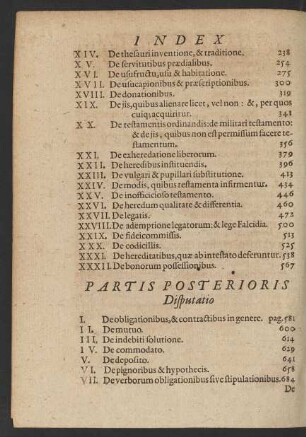 INDEX
XIV. De thesauri inventione, & traditione. 238
XV. De servitutibus prædialibus. 254
XVI. De usufructu, usu & habitatione. 275
XVII. De usucapionibus & præscriptionibus. 300
XVIII. De donationibus. 319
XIX. De iis, quibus alienare licet, vel non: &, per quos
cuiq; acquiritur. 343
XX. De testamentis ordinandis: de militari testamento:
& de iis, quibus non est permissum facere te-
stamentum. 356
XXI. De exheredatione liberorum. 379
XXII. De heredibus instituendis. 396
XXIII. De vulgari & pupillari substitutione. 413
XXIV. De modis, quibus testamenta infirmentur. 434
XXV. De inofficioso testamento. 446
XXVI. De heredum qualitate & differentia. 460
XXVII. De legatis. 472
XXVIII. De ademptione legatorum: & lege Falcidia. 500
XXIX. De fideicommissis. 513
XXX. De codicillis. 525
XXXI. De hereditatibus, quæ ab intestato deferuntur. 538
XXXII. De bonorum possessionibus. 567
PARTIS POSTERIORIS
Disputatio
I. De obligationibus, & contractibus in genere. pag. 581
II. De mutuo. 600
III. De indebiti solutione. 614
IV. De commodato. 629
V. De deposito. 641
VI. De pignoribus & hypothecis. 658
VII. De verborum obligationibus sive stipulationibus. 684
De